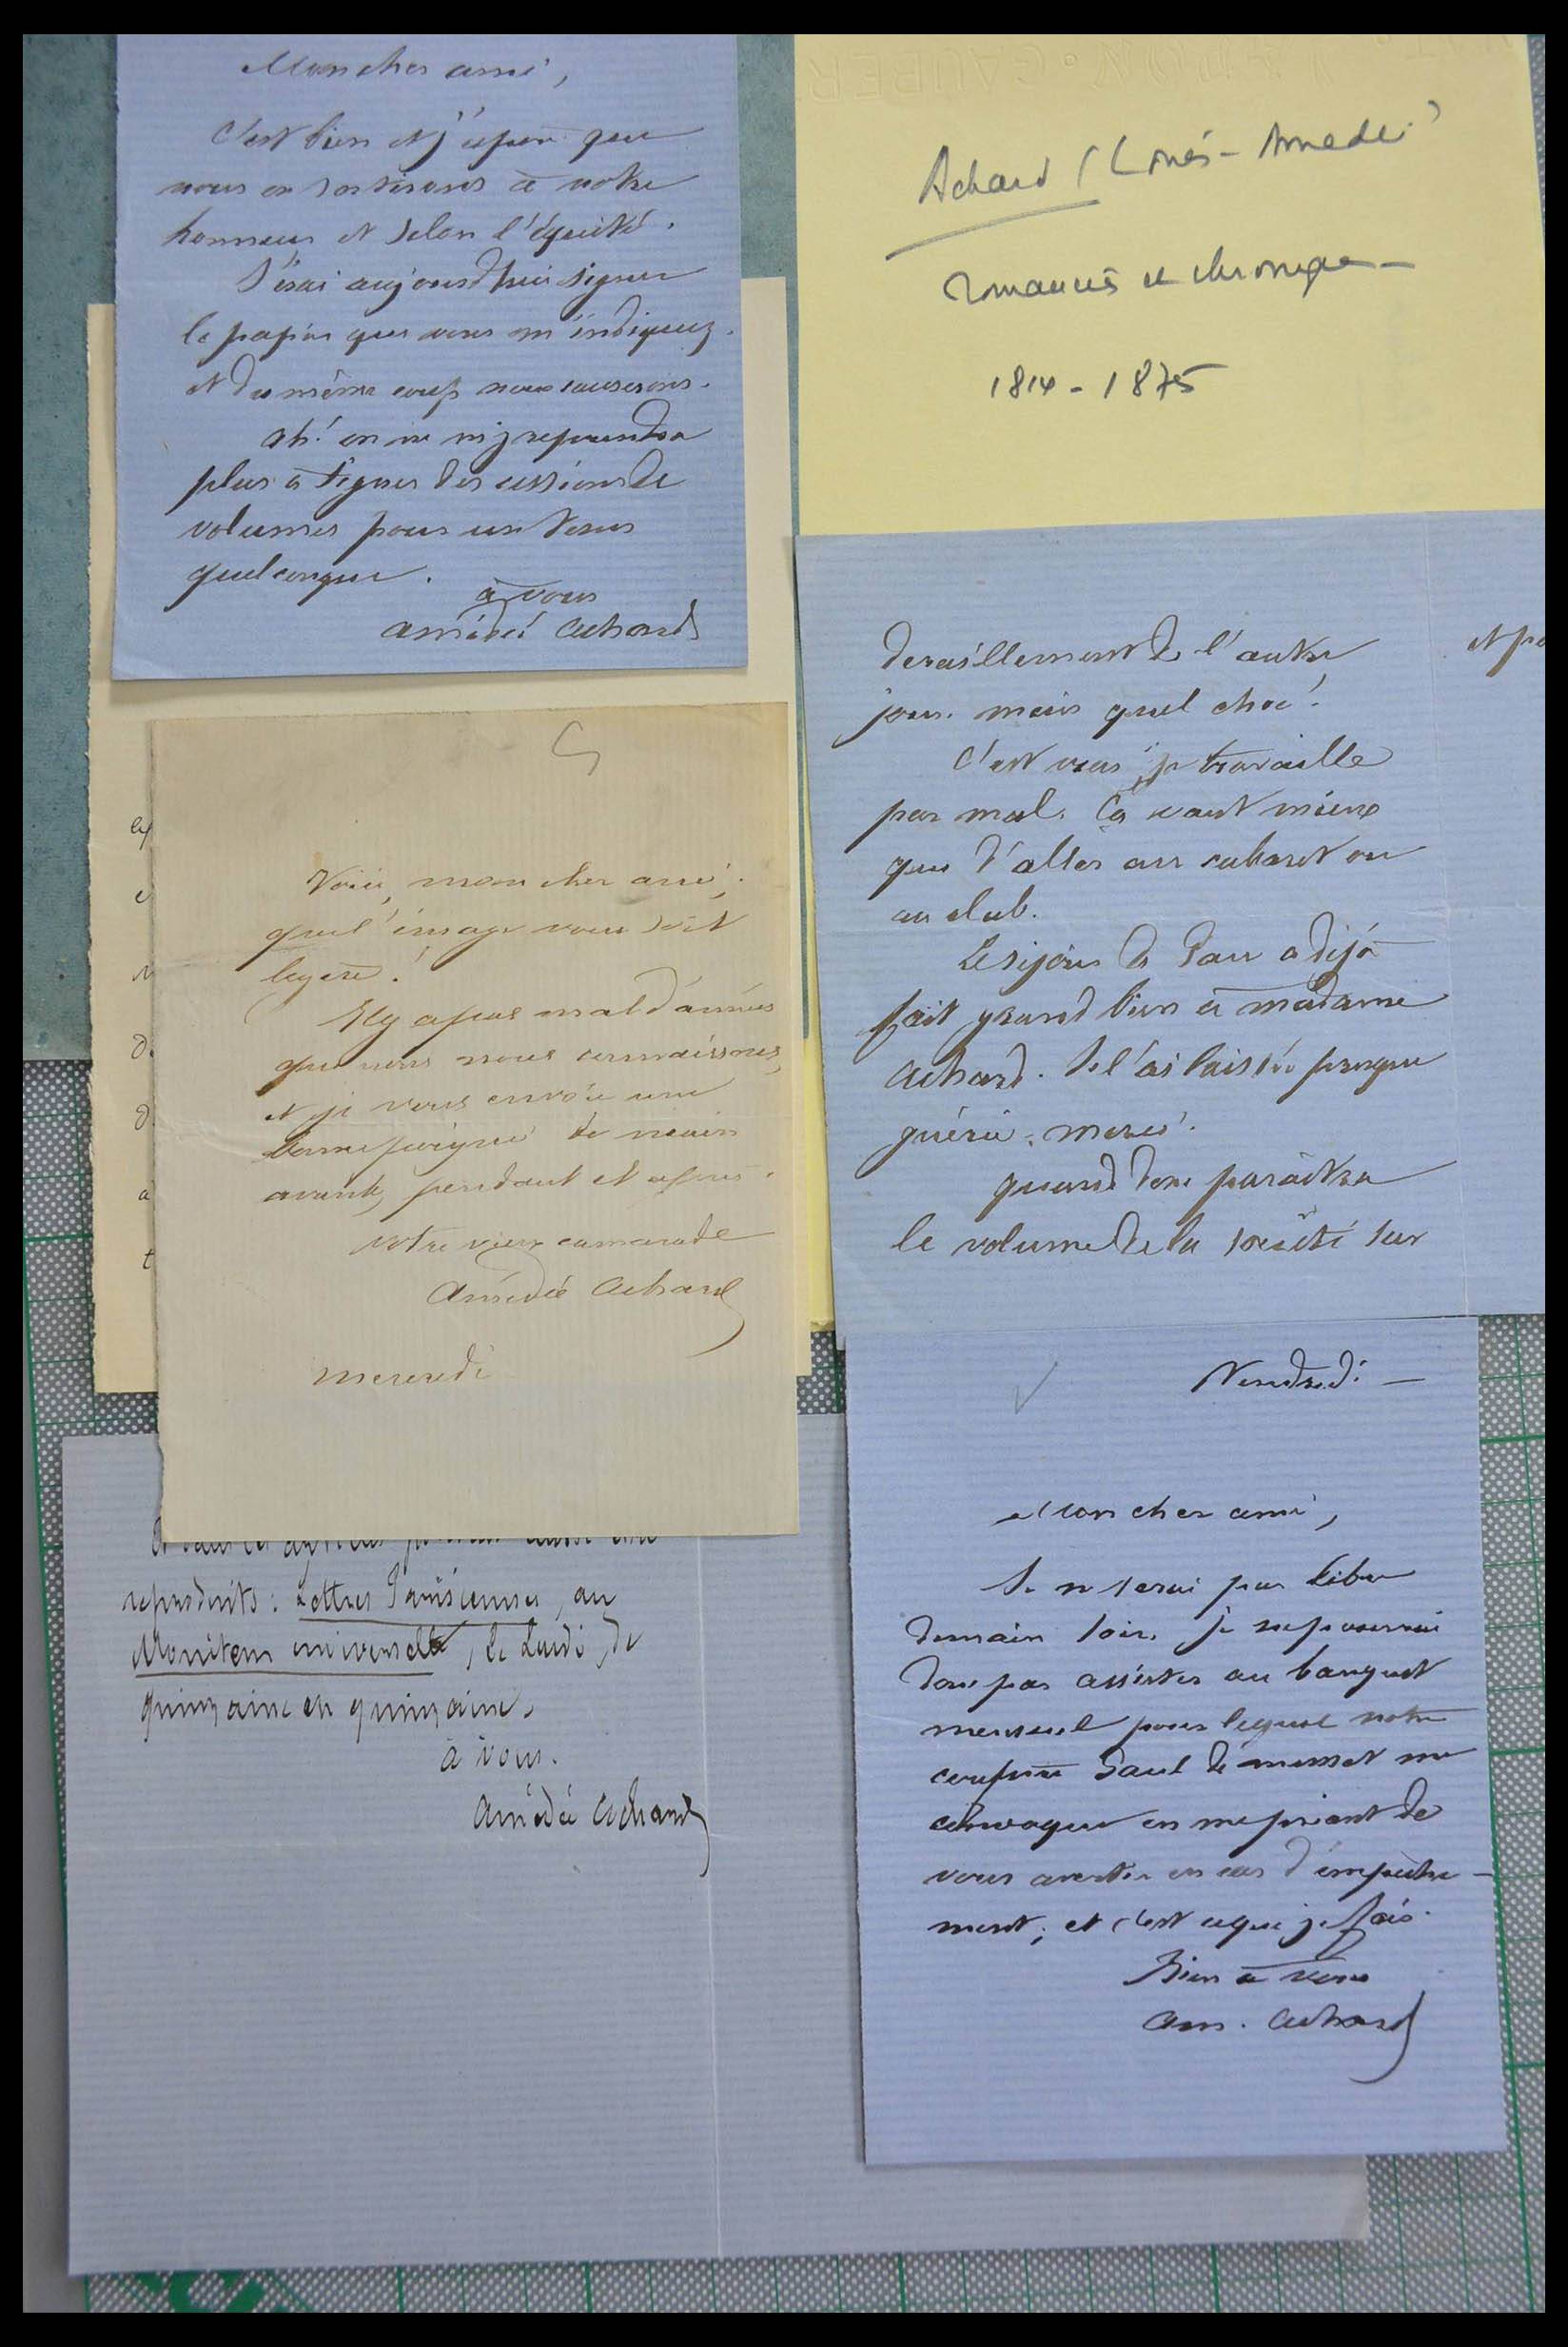 Mon cher ami,
C'est bien et j'espère que
nous en sortirons à notre
honneur et selon l'équité.
J'irai aujourd'hui signer
le papier que vous m'indiquez.
et du même coup nous causerons.
Ah! on ne m'y reprendra
plus à signer des cessions de
volumes pour un tems
quelconque.
à vous
Amédée Achard
Achard (Louis-Amédée)
romancier et chroniqueur
1814-1875
deraillement de l'autre
jour. mais quel choc!
C'est vrai, je travaille
pas mal. Ça vaut mieux
que d'aller au cabaret ou
au club.
Le séjour de Pau a déjà
fait grand bien à madame
Achard. Je l'ai laissée presque
guérie. merci.
quand donc paraîtra
le volume de la société sur
Voici, mon cher ami,
que l'image vous soit
legère!
Il y a pas mal d'années
que nous nous connaissons,
et je vous envoie une
bonne poignée de main
avant, pendant et après.
votre vieux camarade
Amédée Achard
mercredi
reproduits: Lettres Parisiennes, au
Moniteur universel, le Lundi, de
quinzaine en quinzaine.
à vous.
Amédée Achard
Vendredi —
Mon cher ami,
Je ne serai pas libre
demain soir. je ne pourrai
donc pas assister au banquet
mensuel pour lequel notre
confrère Paul de Musset me
convoque en me priant de
vous avertir en cas d'empêche-
ment; et c'est ce que je fais.
Bien à vous
Am. Achard